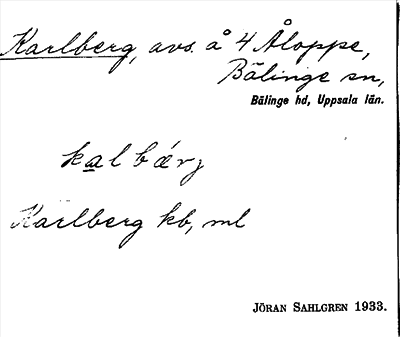 Karlberg, avs. å 4 Åloppe,
Bälinge sn,
Bälinge hd, Uppsala län.
kalbǽrj
Karlberg kb, ml
JÖRAN SAHLGREN 1933.